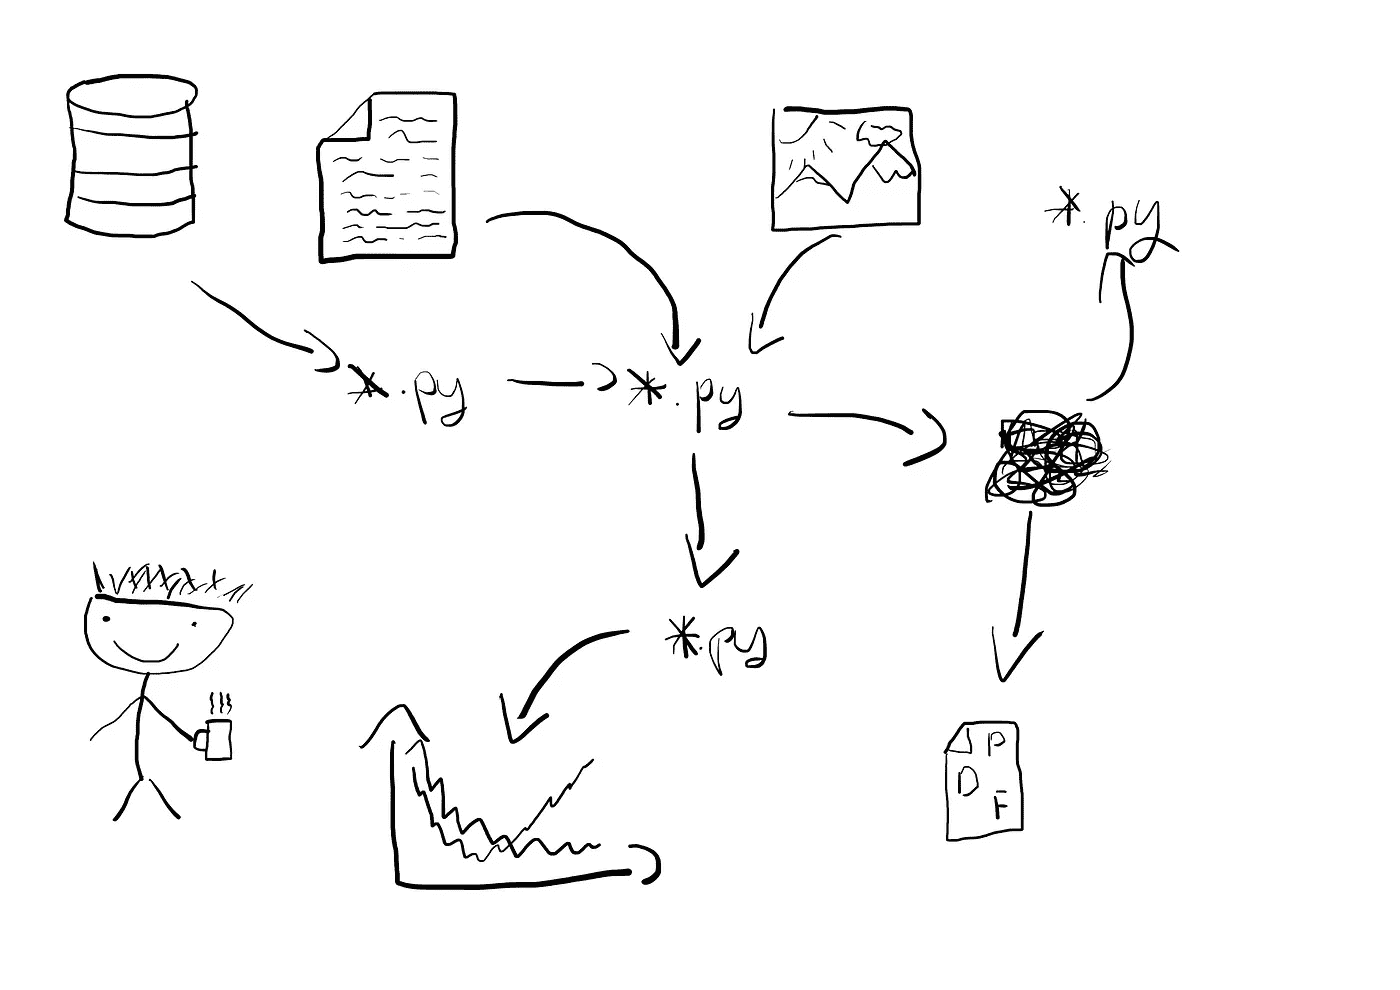 *.py
*.py
*.py
*.py
P
D
F